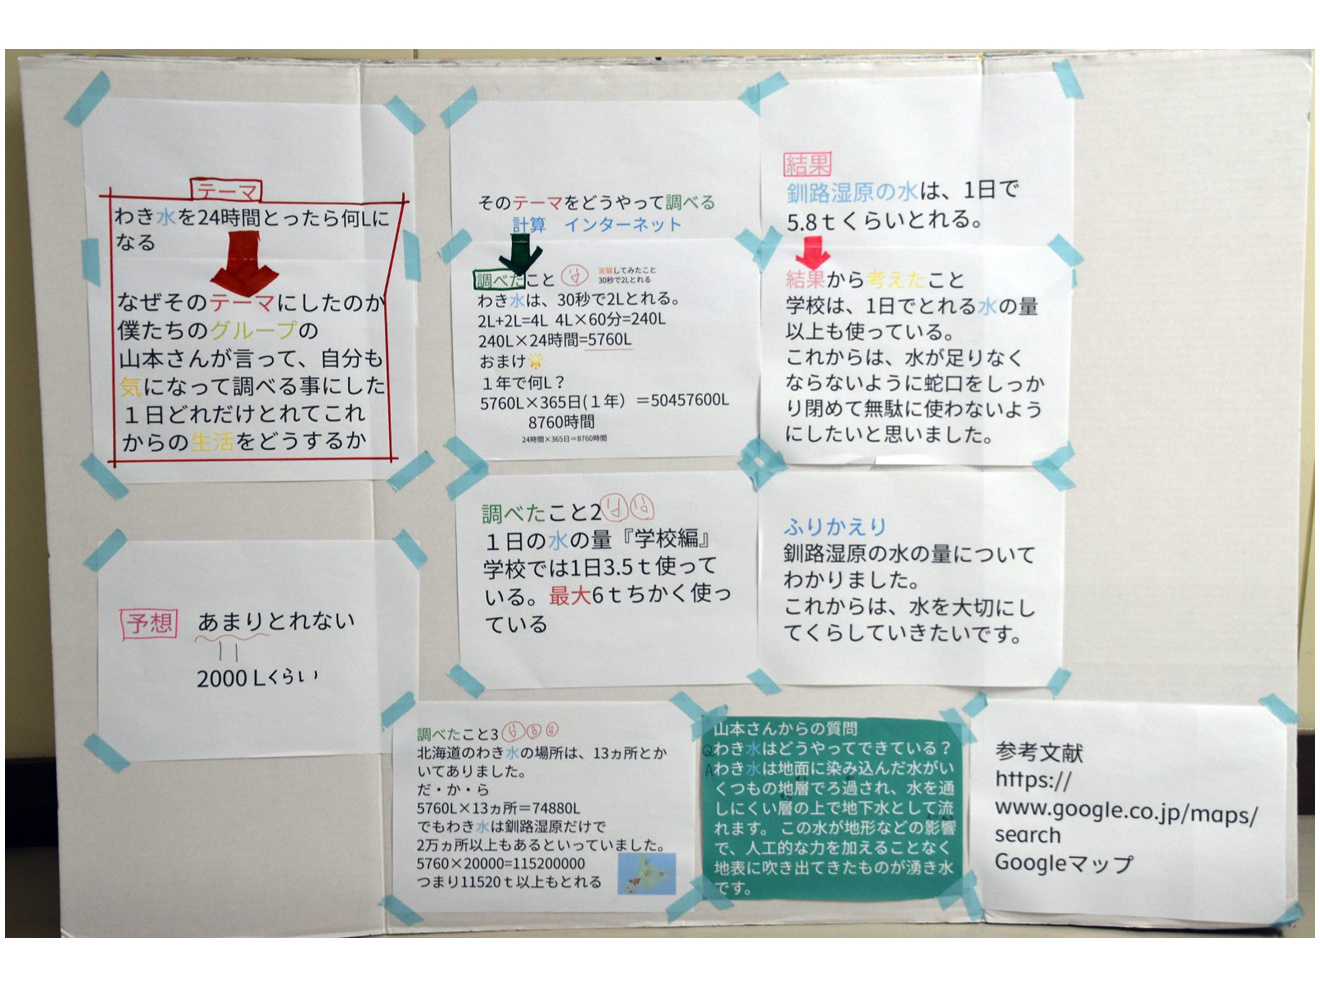 テーマ
わき水を24時間とったら何Lに
なる
なぜそのテーマにしたのか
僕たちのグループの
山本さんが言って、自分も
気になって調べる事にした
１日どれだけとれてこれ
からの生活をどうするか
予想 あまりとれない
2000Lくらい
そのテーマをどうやって調べる
計算 インターネット
調べたこと
実験してみたこと
30秒で2Lとれる
わき水は、30秒で2Lとれる。
2L+2L=4L 4L×60分=240L
240L×24時間=5760L
おまけ
１年で何L？
5760L×365日(１年）＝50457600L
8760時間
24時間×365日＝8760時間
調べたこと2
１日の水の量『学校編』
学校では1日3.5ｔ使って
いる。最大6ｔちかく使っ
ている
調べたこと3
北海道のわき水の場所は、13ヵ所とか
いてありました。
だ・か・ら
5760L×13ヵ所＝74880L
でもわき水は釧路湿原だけで
2万ヵ所以上もあるといっていました。
5760×20000=115200000
つまり11520ｔ以上もとれる
結果
釧路湿原の水は、1日で
5.8ｔくらいとれる。
結果から考えたこと
学校は、1日でとれる水の量
以上も使っている。
これからは、水が足りなく
ならないように蛇口をしっか
り閉めて無駄に使わないよう
にしたいと思いました。
ふりかえり
釧路湿原の水の量について
わかりました。
これからは、水を大切にし
てくらしていきたいです。
山本さんからの質問
Q わき水はどうやってできている？
A わき水は地面に染み込んだ水がい
くつもの地層でろ過され、水を通
しにくい層の上で地下水として流
れます。この水が地形などの影響
で、人工的な力を加えることなく
地表に吹き出てきたものが湧き水
です。
参考文献
https://
www.google.co.jp/maps/
search
Googleマップ